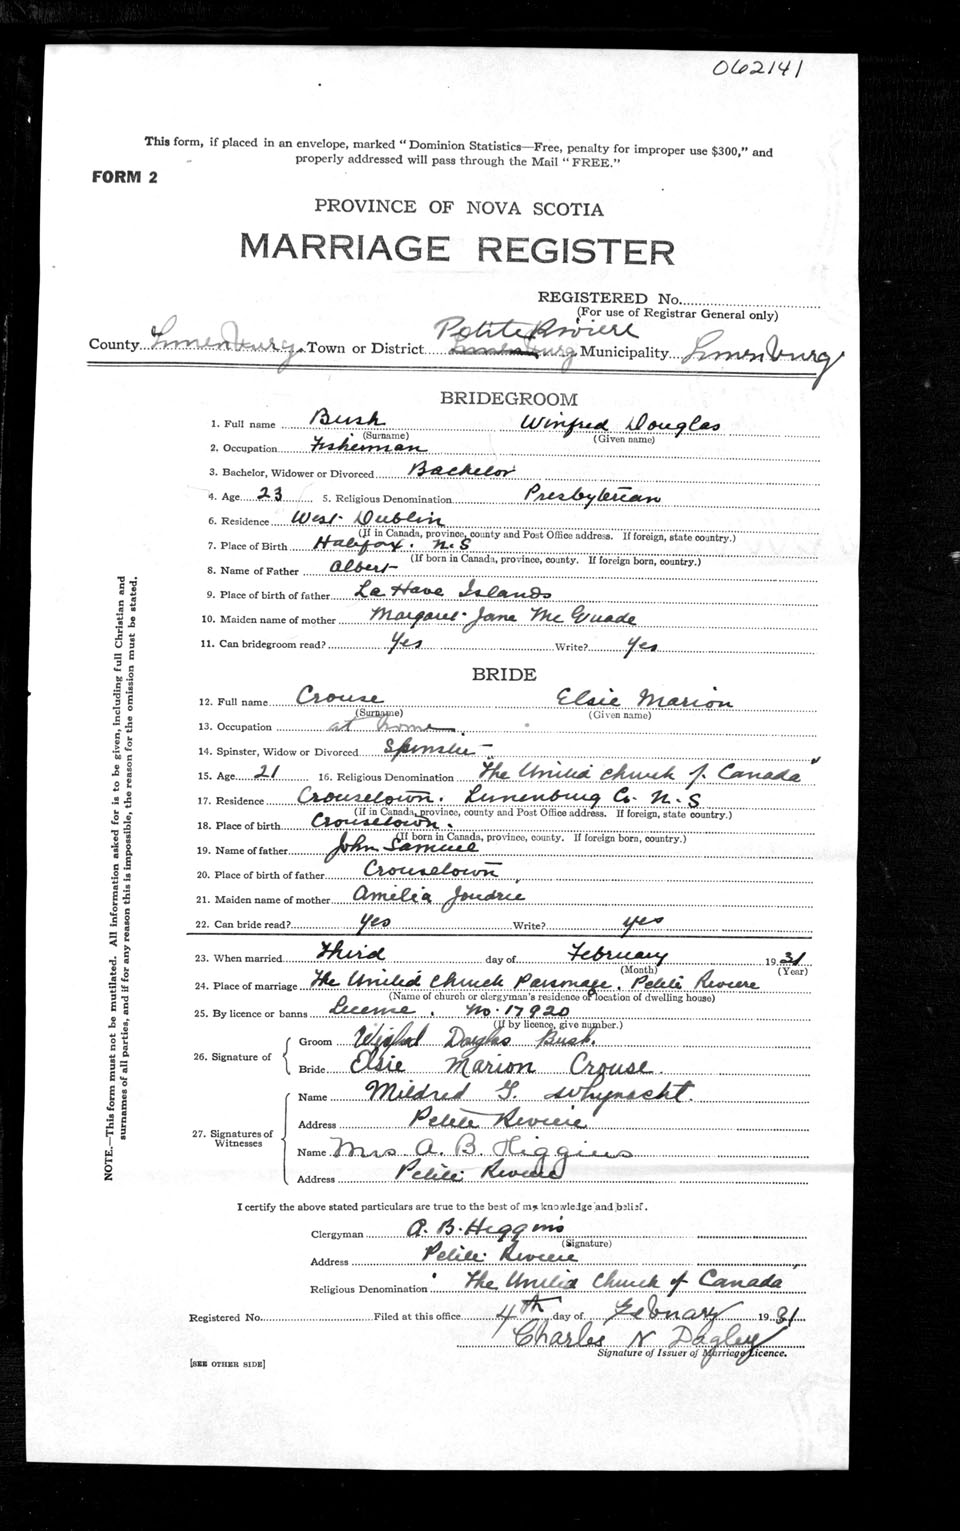 062141
This form, if placed in an envelope, marked "Dominion Statistics—Free, penalty for improper use $300," and
properly addressed will pass through the Mail "FREE."
FORM 2
PROVINCE OF NOVA SCOTIA
MARRIAGE REGISTER
REGISTERED No.
(For use of Registrar General only)
Petite Riviere
County Lunenburg Town or District Lunenburg Municipality Lunenburg
BRIDEGROOM
1. Full name Bush Winfred Douglas
(Surname) (Given name)
2. Occupation Fisherman
3. Bachelor, Widower or Divorced Bachelor
4. Age 23 5. Religious Denomination Presbyterian
6. Residence West Dublin
(If in Canada, province, county and Post Office address. If foreign, state country.)
7. Place of Birth Halifax. N.S
(If born in Canada, province, county. If foreign born, country.)
8. Name of Father Albert
9. Place of birth of father La Have Islands
10. Maiden name of mother Margaret Jane Mc Guade
11. Can bridegroom read? Yes Write? Yes
BRIDE
12. Full name Crouse Elsie Marion
(Surname) (Given name)
13. Occupation at home
14. Spinster, Widow or Divorced Spinster
15. Age 21 16. Religious Denomination "The United Church of Canada"
17. Residence Crousetown. Lunenburg Co. N.S
(If in Canada, province, county and Post Office address. If foreign, state country.)
18. Place of birth Crousetown.
(If born in Canada, province, county. If foreign born, country.)
19. Name of father John Samuel
20. Place of birth of father Crousetown
21. Maiden name of mother Amelia Joudrie
22. Can bride read? Yes Write? yes
23. When married Third day of February 1931
(Month) (Year)
24. Place of marriage The United Church Parsonage, Petite Riviere
(Name of church or clergyman's residence or location of dwelling house)
25. By licence or banns License. No. 17920
(If by licence, give number.)
26. Signature of
Groom Douglas Bush.
Bride Elsie Marion Crouse.
27. Signatures of
Witnesses
Name Mildred G. Whynacht.
Address Petite Riviere
Name Mrs A. B. Higgins
Address Petite Riviere
I certify the above stated particulars are true to the best of my knowledge and belief.
Clergyman A. B. Higgins
(Signature)
Address Petite Riviere
Religious Denomination "The United Church of Canada"
Registered No. Filed at this office 4th day of February 1931
Charles N Dagley
Signature of Issuer of Marriage Licence.
[SEE OTHER SIDE]
NOTE.—This form must not be mutilated. All information asked for is to be given, including full Christian and
surnames of all parties, and if for any reason this is impossible, the reason for the omission must be stated.